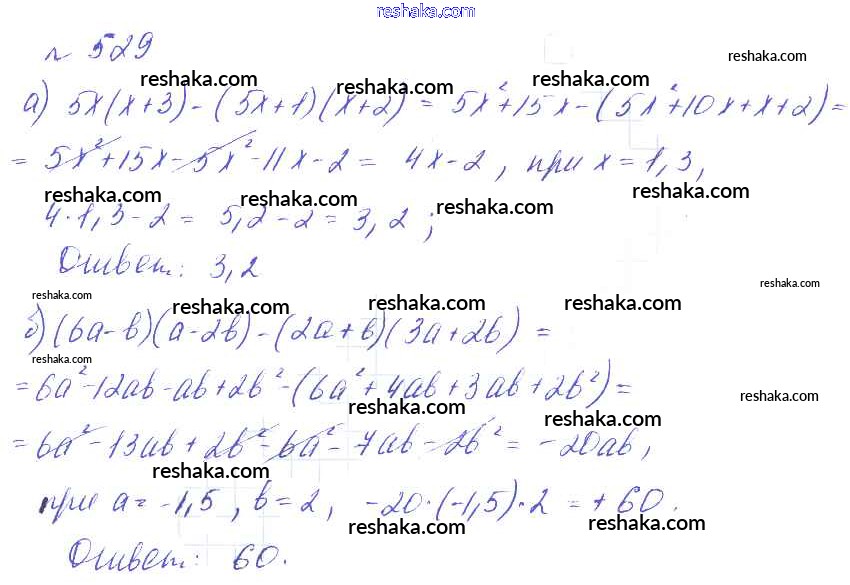 reshaka.com
№ 529
reshaka.com
reshaka.com reshaka.com reshaka.com
а) 5x(x+3)-(5x+1)(x+2) = 5x²+15x-(5x²+10x+x+2)=
= 5x²+15x-5x²-11x-2 = 4x-2, при x=1,3,
reshaka.com reshaka.com reshaka.com reshaka.com
4·1,3-2 = 5,2-2 = 3,2;
Ответ: 3,2
reshaka.com
reshaka.com reshaka.com reshaka.com reshaka.com
б) (6a-b)(a-2b)-(2a+b)(3a+2b) =
reshaka.com
= 6a²-12ab-ab+2b²-(6a²+4ab+3ab+2b²)=
reshaka.com reshaka.com reshaka.com
= 6a²-13ab+2b²-6a²-7ab-2b² = -20ab,
reshaka.com reshaka.com
при a=-1,5, b=2, -20·(-1,5)·2 = +60.
reshaka.com reshaka.com
Ответ: 60.